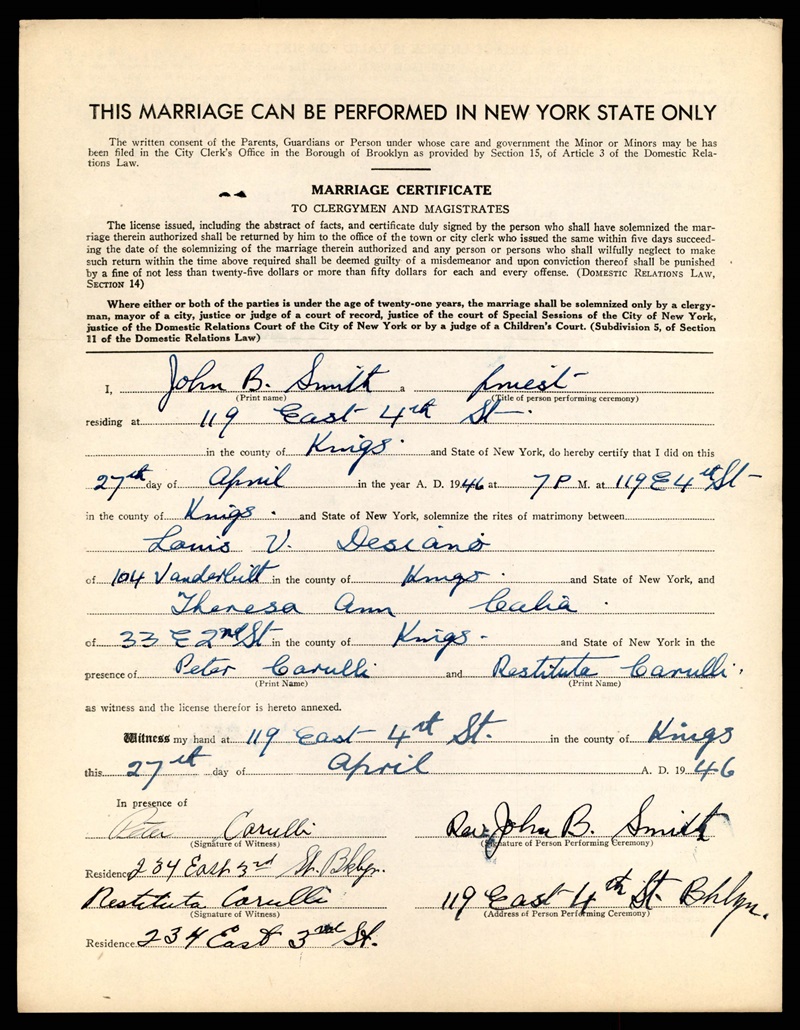 THIS MARRIAGE CAN BE PERFORMED IN NEW YORK STATE ONLY
The written consent of the Parents, Guardians or Person under whose care and government the Minor or Minors may be has
been filed in the City Clerk's Office in the Borough of Brooklyn as provided by Section 15, of Article 3 of the Domestic Rela-
tions Law.
MARRIAGE CERTIFICATE
TO CLERGYMEN AND MAGISTRATES
The license issued, including the abstract of facts, and certificate duly signed by the person who shall have solemnized the mar-
riage therein authorized shall be returned by him to the office of the town or city clerk who issued the same within five days succeed-
ing the date of the solemnizing of the marriage therein authorized and any person or persons who shall wilfully neglect to make
such return within the time above required shall be deemed guilty of a misdemeanor and upon conviction thereof shall be punished
by a fine of not less than twenty-five dollars or more than fifty dollars for each and every offense. (DOMESTIC RELATIONS LAW,
SECTION 14)
Where either or both of the parties is under the age of twenty-one years, the marriage shall be solemnized only by a clergy-
man, mayor of a city, justice or judge of a court of record, justice of the court of Special Sessions of the City of New York,
justice of the Domestic Relations Court of the City of New York or by a judge of a Children's Court. (Subdivision 5, of Section
11 of the Domestic Relations Law)
I, John B. Smith a priest
(Print name) (Title of person performing ceremony)
residing at 119 East 4th St.
in the county of Kings. and State of New York, do hereby certify that I did on this
27th day of April in the year A. D. 1946 at 7 P M. at 119 E 4th St
in the county of Kings. and State of New York, solemnize the rites of matrimony between
Louis V. Desiano
of 104 Vanderbilt in the county of Kings. and State of New York, and
Theresa Ann Celia.
of 33 E 2nd St in the county of Kings. and State of New York in the
presence of Peter Carulli and Restituta Carulli.
(Print Name) (Print Name)
as witness and the license therefor is hereto annexed.
Witness my hand at 119 East 4th St. in the county of Kings
this 27th day of April A. D. 1946
In presence of
Peter Carulli Rev. John B. Smith
(Signature of Witness) (Signature of Person Performing Ceremony)
Residence 234 East 3rd St. Bklyn.
Restituta Carulli 119 East 4th St Bklyn.
(Signature of Witness) (Address of Person Performing Ceremony)
Residence. 234 East 3rd St.